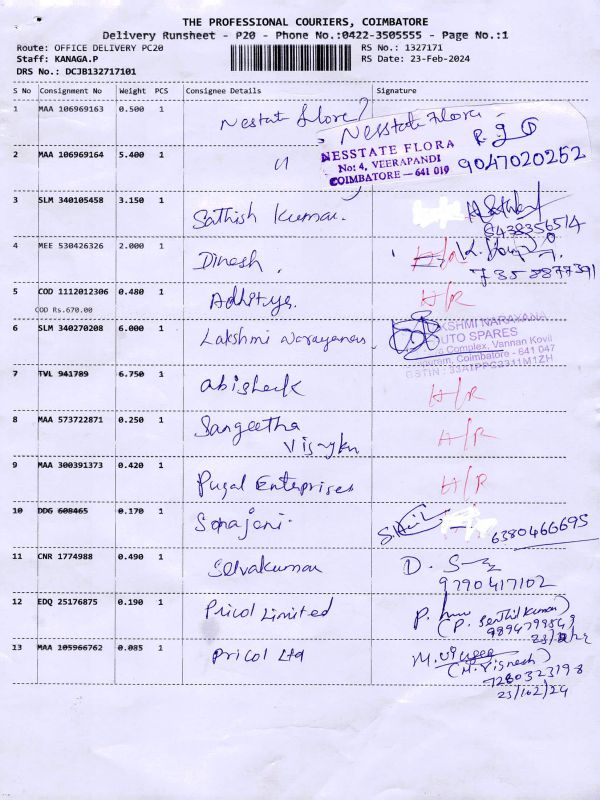 THE PROFESSIONAL COURIERS, COIMBATORE
Delivery Runsheet - P20 - Phone No.:0422-3505555 - Page No.:1
Route: OFFICE DELIVERY PC20 RS No.: 1327171
Staff: KANAGA.P RS Date: 23-Feb-2024
DRS No.: DCJB132717101
S No Consignment No Weight PCS Consignee Details Signature
1 MAA 106969163 0.500 1 Nestat flore? Nesstate Flora
NESSTATE FLORA
No: 4, VEERAPANDI
COIMBATORE - 641 019
9047020252
2 MAA 106969164 5.400 1 "
3 SLM 340105458 3.150 1 Sathish Kumar.
8438356514
4 MEE 530426326 2.000 1 Dinesh. H/R
7358877391
5 COD 1112012306 0.480 1 Adhitya. H/R
COD Rs.670.00
6 SLM 340270208 6.000 1 Lakshmi Narayanan
LAKSHMI NARAYANA
AUTO SPARES
Complex, Vannan Kovil
Coimbatore - 641 047
GSTIN : 33AIPPG2311M1ZH
7 TVL 941789 6.750 1 abisheck H/R
8 MAA 573722871 0.250 1 Sangeetha H/R
9 MAA 300391373 0.420 1 Pugal Enterprises H/R
10 DDG 608465 0.170 1 6380466695
11 CNR 1774988 0.490 1 Selvakumar D. S
9790417102
12 EDQ 25176875 0.190 1 Pricol Limited P.
(P. Senthil Kumar)
9894799549
13 MAA 105966762 0.085 1 Pricol Ltd
(M. Vignesh)
7280323198
23/02/24